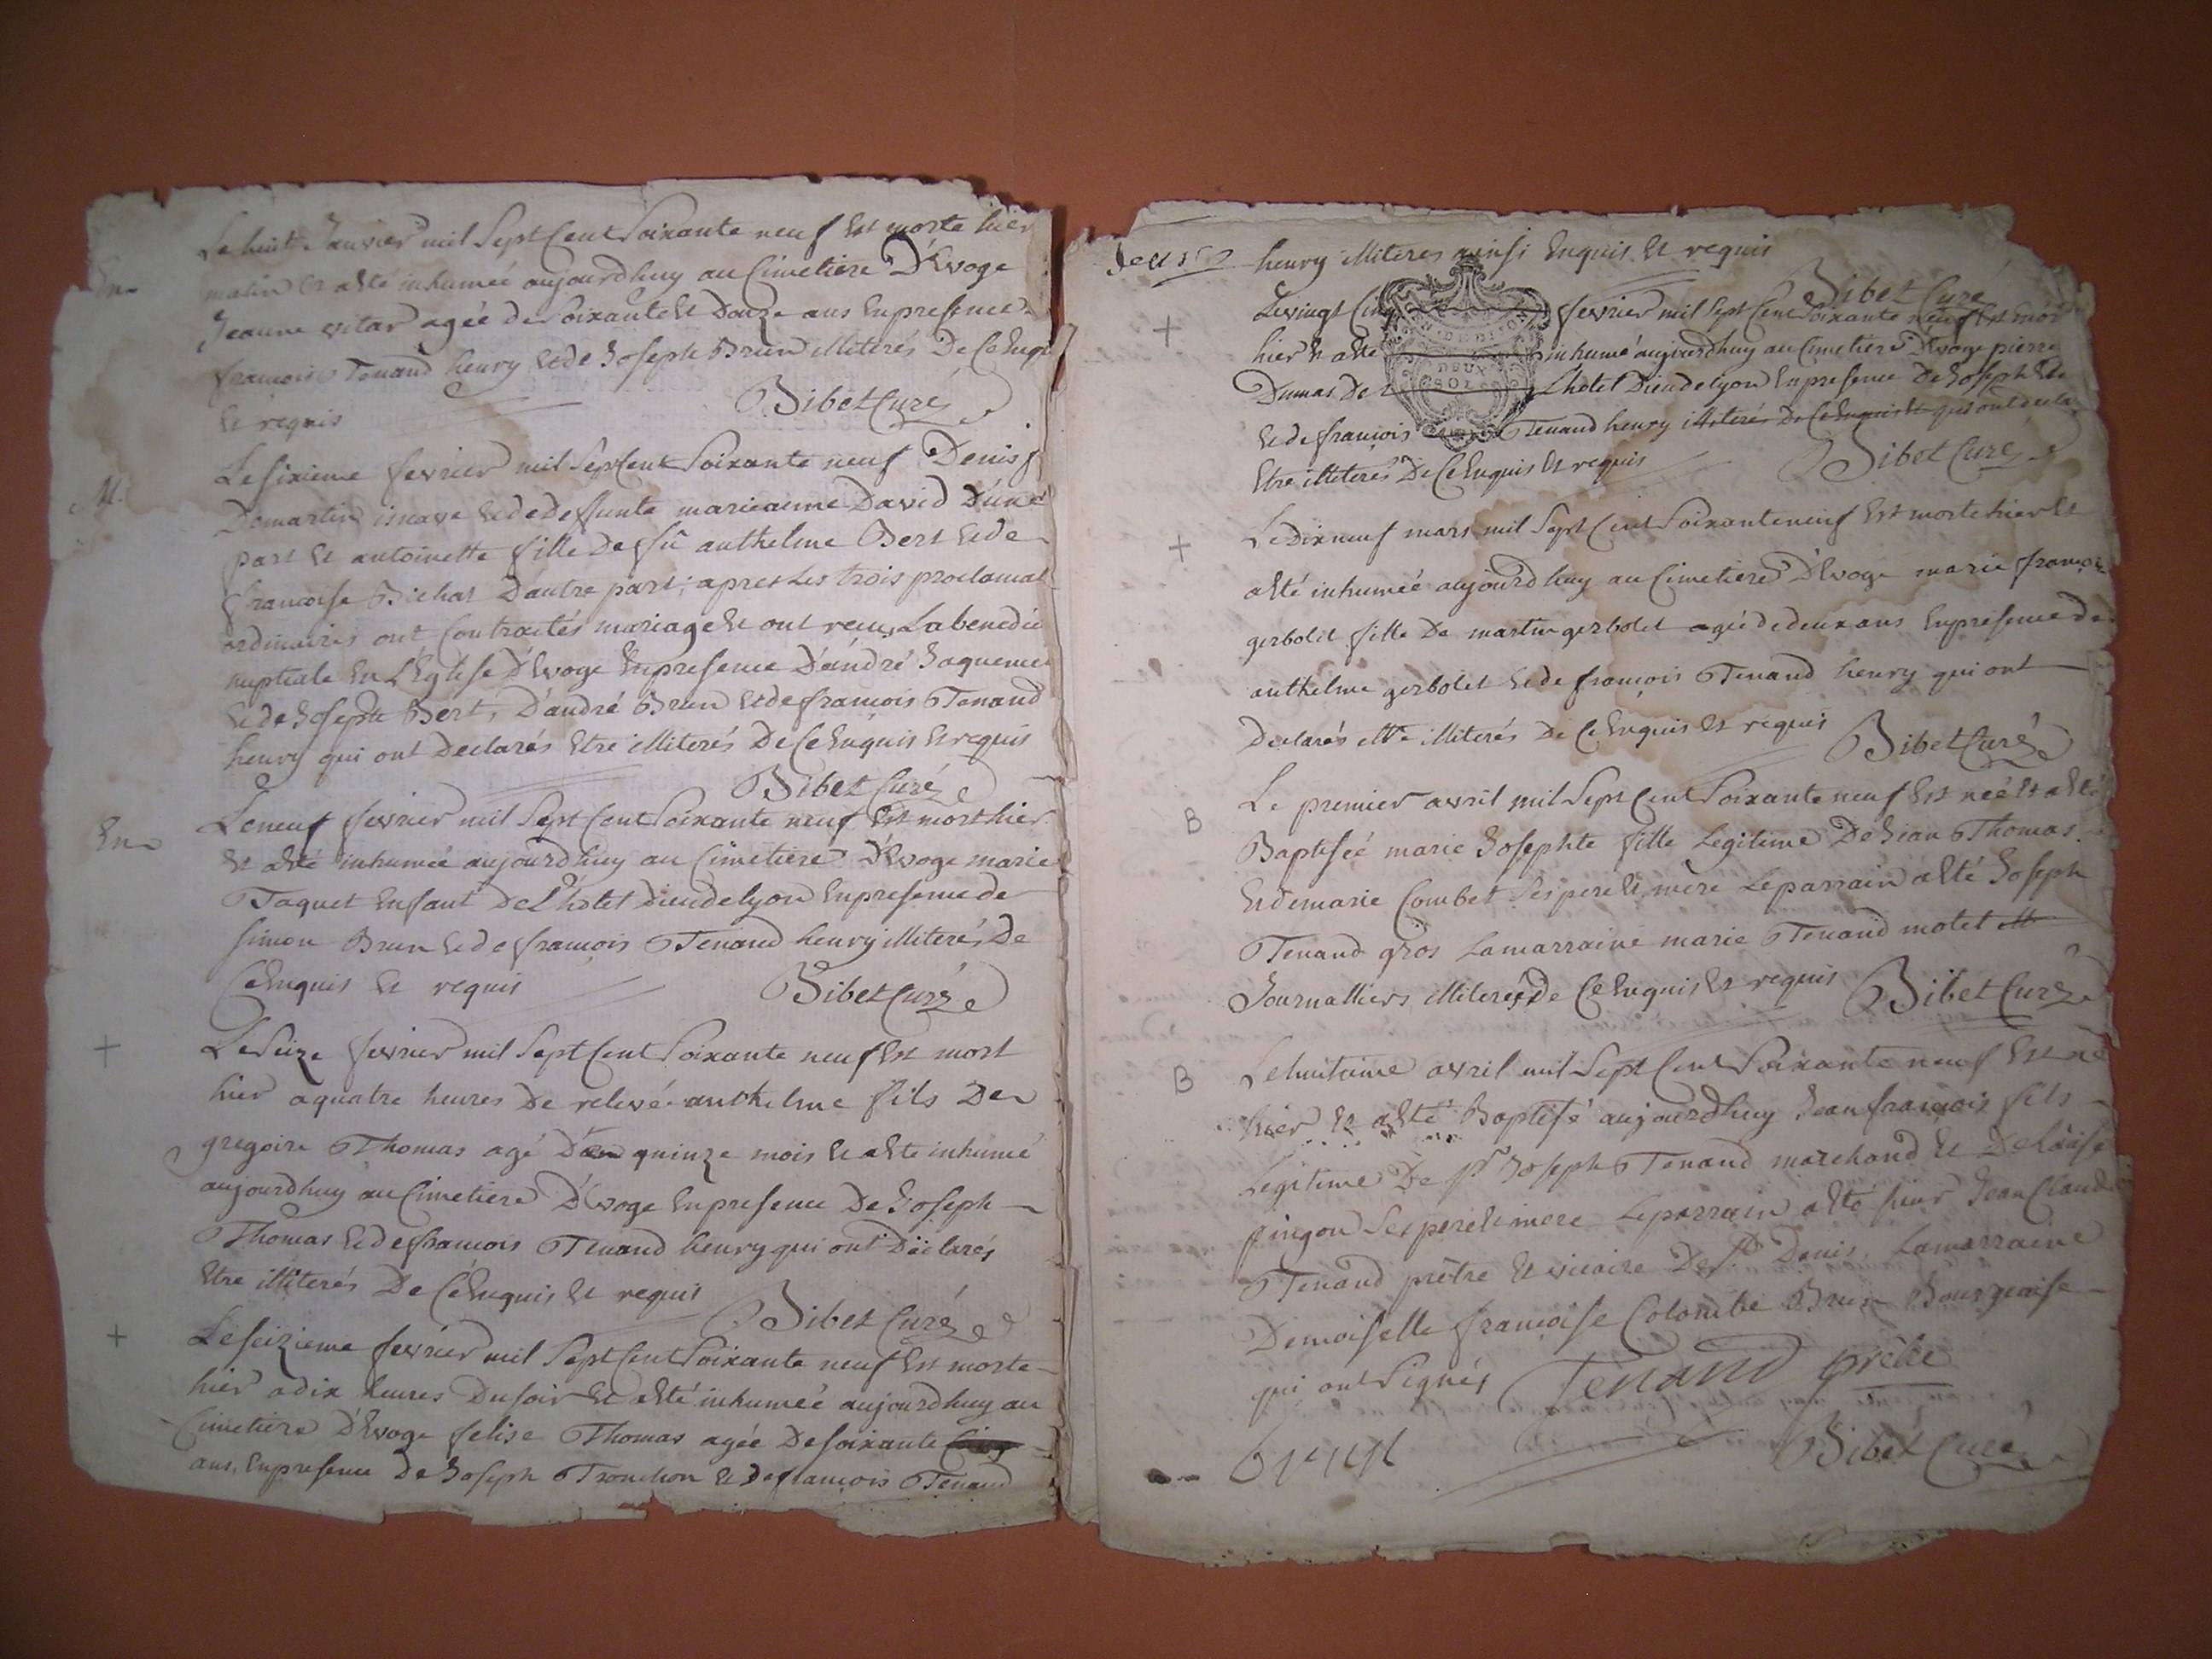 Le huit Janvier mil Sept Cent Soixante neuf Est morte hier
En
matin Et a Eté inhumeé aujourdhuy au Cimetiere D'Evoge
Jeanne vitar ageé de Soixante Et Douze ans En presence
francois Tenand henry Et de Joseph Brun illiterés De Ce Enq
Et requis
Bibet Curé
Le sixieme fevrier mil Sept Cent Soixante neuf Denis f
M.
De martin Et de Deffunte marieanne David D'une
part Et antoinette fille De fû anthelme Bert Et de
francoise Bichat D'autre part; apres Les trois proclamat
ordinaires ont Contractés mariage Et ont recu La benedic
nuptiale En L'Eglise D'Evoge En presence D'andré Jaquemet
Et de Joseph Bert, D'andré Brun Et de francois Tenand
henry qui ont Declarés Etre illiterés De Ce Enquis Et requis
Bibet Curé
En
Le neuf fevrier mil Sept Cent Soixante neuf Est mort hier
Et a Eté inhumeé aujourdhuy au Cimetiere D'Evoge marie
Taquet Enfant De L'hôtel Dieu de lyon En presence de
simon Brun Et de francois Tenand henry illiterés De
Ce Enquis Et requis
Bibet Curé
+ Le Seize fevrier mil Sept Cent Soixante neuf Est mort
hier a quatre heures De relevé anthelme fils De
gregoire Thomas agé quinze mois Et a Eté inhumé
aujourdhuy au Cimetiere D'Evoge En presence De Joseph
Thomas Et de francois Tenand henry qui ont Declarés
Etre illiterés De Ce Enquis Et requis
Bibet Curé
+ Le seizieme fevrier mil Sept Cent Soixante neuf Est morte
hier a dix heures Du soir Et a Eté inhumeé aujourdhuy au
Cimetiere D'Evoge felise Thomas ageé De soixante
ans, En presence De Joseph Tronchon Et De francois Tenand
deux
henry illiteres ainsi Enquis Et requis
Bibet Curé
+ Le vingt Cinq fevrier mil Sept Cent Soixante neuf Est mort
hier Et a Eté inhumé aujourdhuy au Cimetiere D'Evoge pierre
DEUX
SOLS
Dumas De L'hotel Dieu de lyon En presence De Joseph
Et de francois Tenand henry illiterés De Ce Enquis Et qui ont decla
Etre illiterés De Ce Enquis Et requis
Bibet Curé
+ Le Dix neuf mars mil Sept Cent Soixante neuf Est morte hier Et
a Eté inhumeé aujourdhuy au Cimetiere D'Evoge marie francoise
gerbolet fille De martin gerbolet ageé de deux ans En presence de
anthelme gerbolet Et de francois Tenand henry qui ont
Declarés Etre illiterés De Ce Enquis Et requis
Bibet Curé
B Le premier avril mil Sept Cent Soixante neuf Est neé Et a Eté
Baptiseé marie Josephte fille Legitime De Jean Thomas
Et de marie Combet Ses pere Et mère Le parrain a Eté Joseph
Tenand gros La marraine marie Tenand motet
Journalliers illiterés De Ce Enquis Et requis
Bibet Curé
B Le huitieme avril mil Sept Cent Soixante neuf Est né
hier Et a Eté Baptisé aujourdhuy Jean francois fils
Legitime De Sr Joseph Tenand marchand Et De Loüise
pingon Ses pere Et mere Le parrain a Eté sieur Jean Claude
Tenand prêtre Et vicaire De St Denis, La marraine
Demoiselle francoise Colombe Brun Bourgeoise
qui ont Signés
Tenand prêtre
brun
Bibet Curé